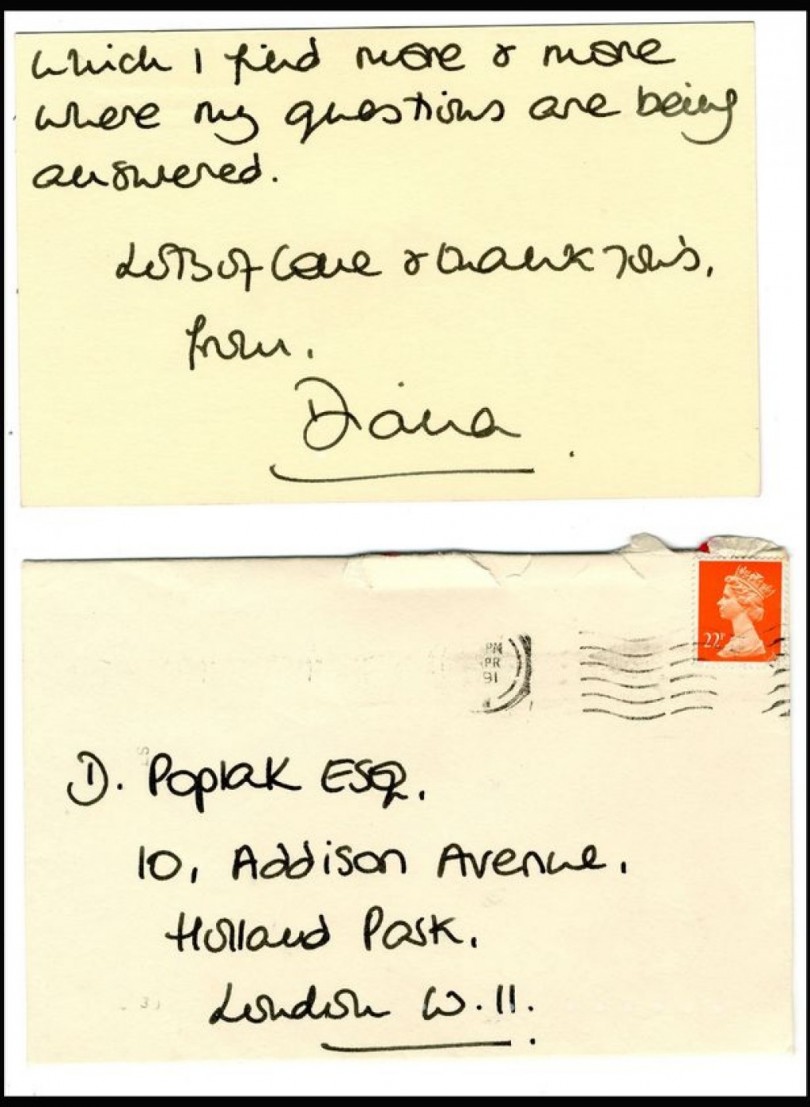 which I find more & more
where my questions are being
answered.
Lots of love & thank you's,
from.
Diana
22P
PM
PR
91
D. Poplak ESQ.
10, Addison Avenue.
Holland Park.
London W.11.